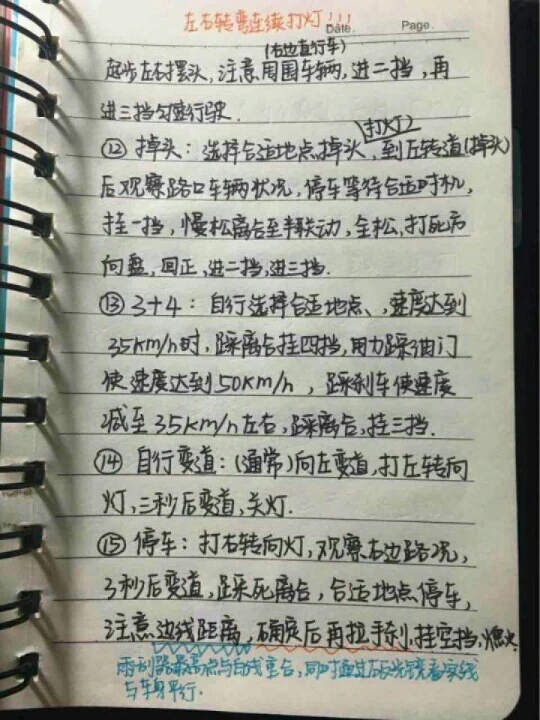 左右转弯连续打灯!!!
Date. Page.
(右边直行车)
起步左右摆头,注意周围车辆,进二挡,再
进三挡匀速行驶.
(打灯)
⑫ 掉头:选择合适地点掉头,到左转道(掉头)
后观察路口车辆状况,停车等待合适时机,
挂一挡,慢松离合至半联动,全松,打死方
向盘,回正,进二挡,进三挡.
⑬ 3+4:自行选择合适地点、,速度达到
35km/h时,踩离合挂四挡,用力踩油门
使速度达到50km/h,踩刹车使速度
减至35km/h左右,踩离合,挂三挡.
⑭ 自行变道:(通常)向左变道,打左转向
灯,三秒后变道,关灯.
⑮ 停车:打右转向灯,观察右边路况,
3秒后变道,踩死离合,合适地点停车,
注意边线距离,确定后再拉手刹,挂空挡,熄火.
雨刮器最高点与白线重合,同时通过右反光镜看实线
与车身平行.